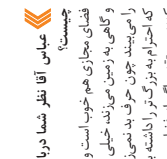 عباس آقا نظر شما دربا
چیست؟
فضای مجازی هم خوب است و
و گاهی به زمین می‌زند، خیلی
را می‌بینند چون حرف بد نمی‌ز
که احترام به بزرگ‌تر را داشته و